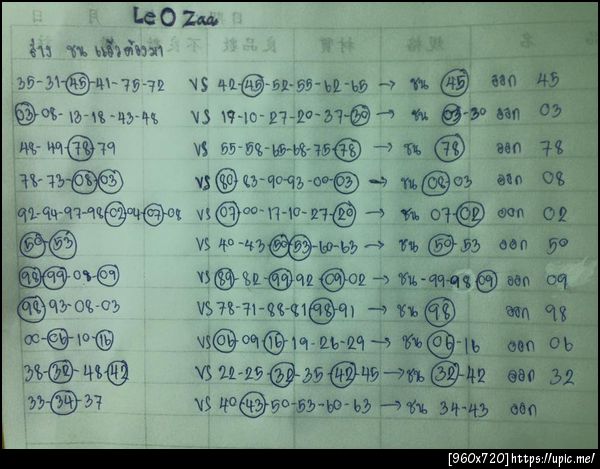 Le O Zaa
ล่าง ชน แล้วต้องมา
35-31-45-41-75-72 VS 42-45-52-55-62-65 → ชน 45 ออก 45
03-08-13-18-43-48 VS 17-10-27-20-37-30 → ชน 03-30 ออก 03
48-49-78-79 VS 55-58-65-68-75-78 → ชน 78 ออก 78
78-73-08-03 VS 80-83-90-93-00-03 → ชน 08-03 ออก 08
92-94-97-98-02-04-07-08 VS 07-00-17-10-27-20 → ชน 07-02 ออก 02
50-53 VS 40-43-50-53-60-63 → ชน 50-53 ออก 50
98-99-08-09 VS 89-82-99-92-09-02 → ชน -99-98-09 ออก 09
98-93-08-03 VS 78-71-88-81-98-91 → ชน 98 ออก 98
00-06-10-16 VS 06-09-16-19-26-29 → ชน 06-16 ออก 06
38-32-48-42 VS 22-25-32-35-42-45 → ชน 32-42 ออก 32
33-34-37 VS 40-43-50-53-60-63 → ชน 34-43 ออก
[960x720]https://upic.me/